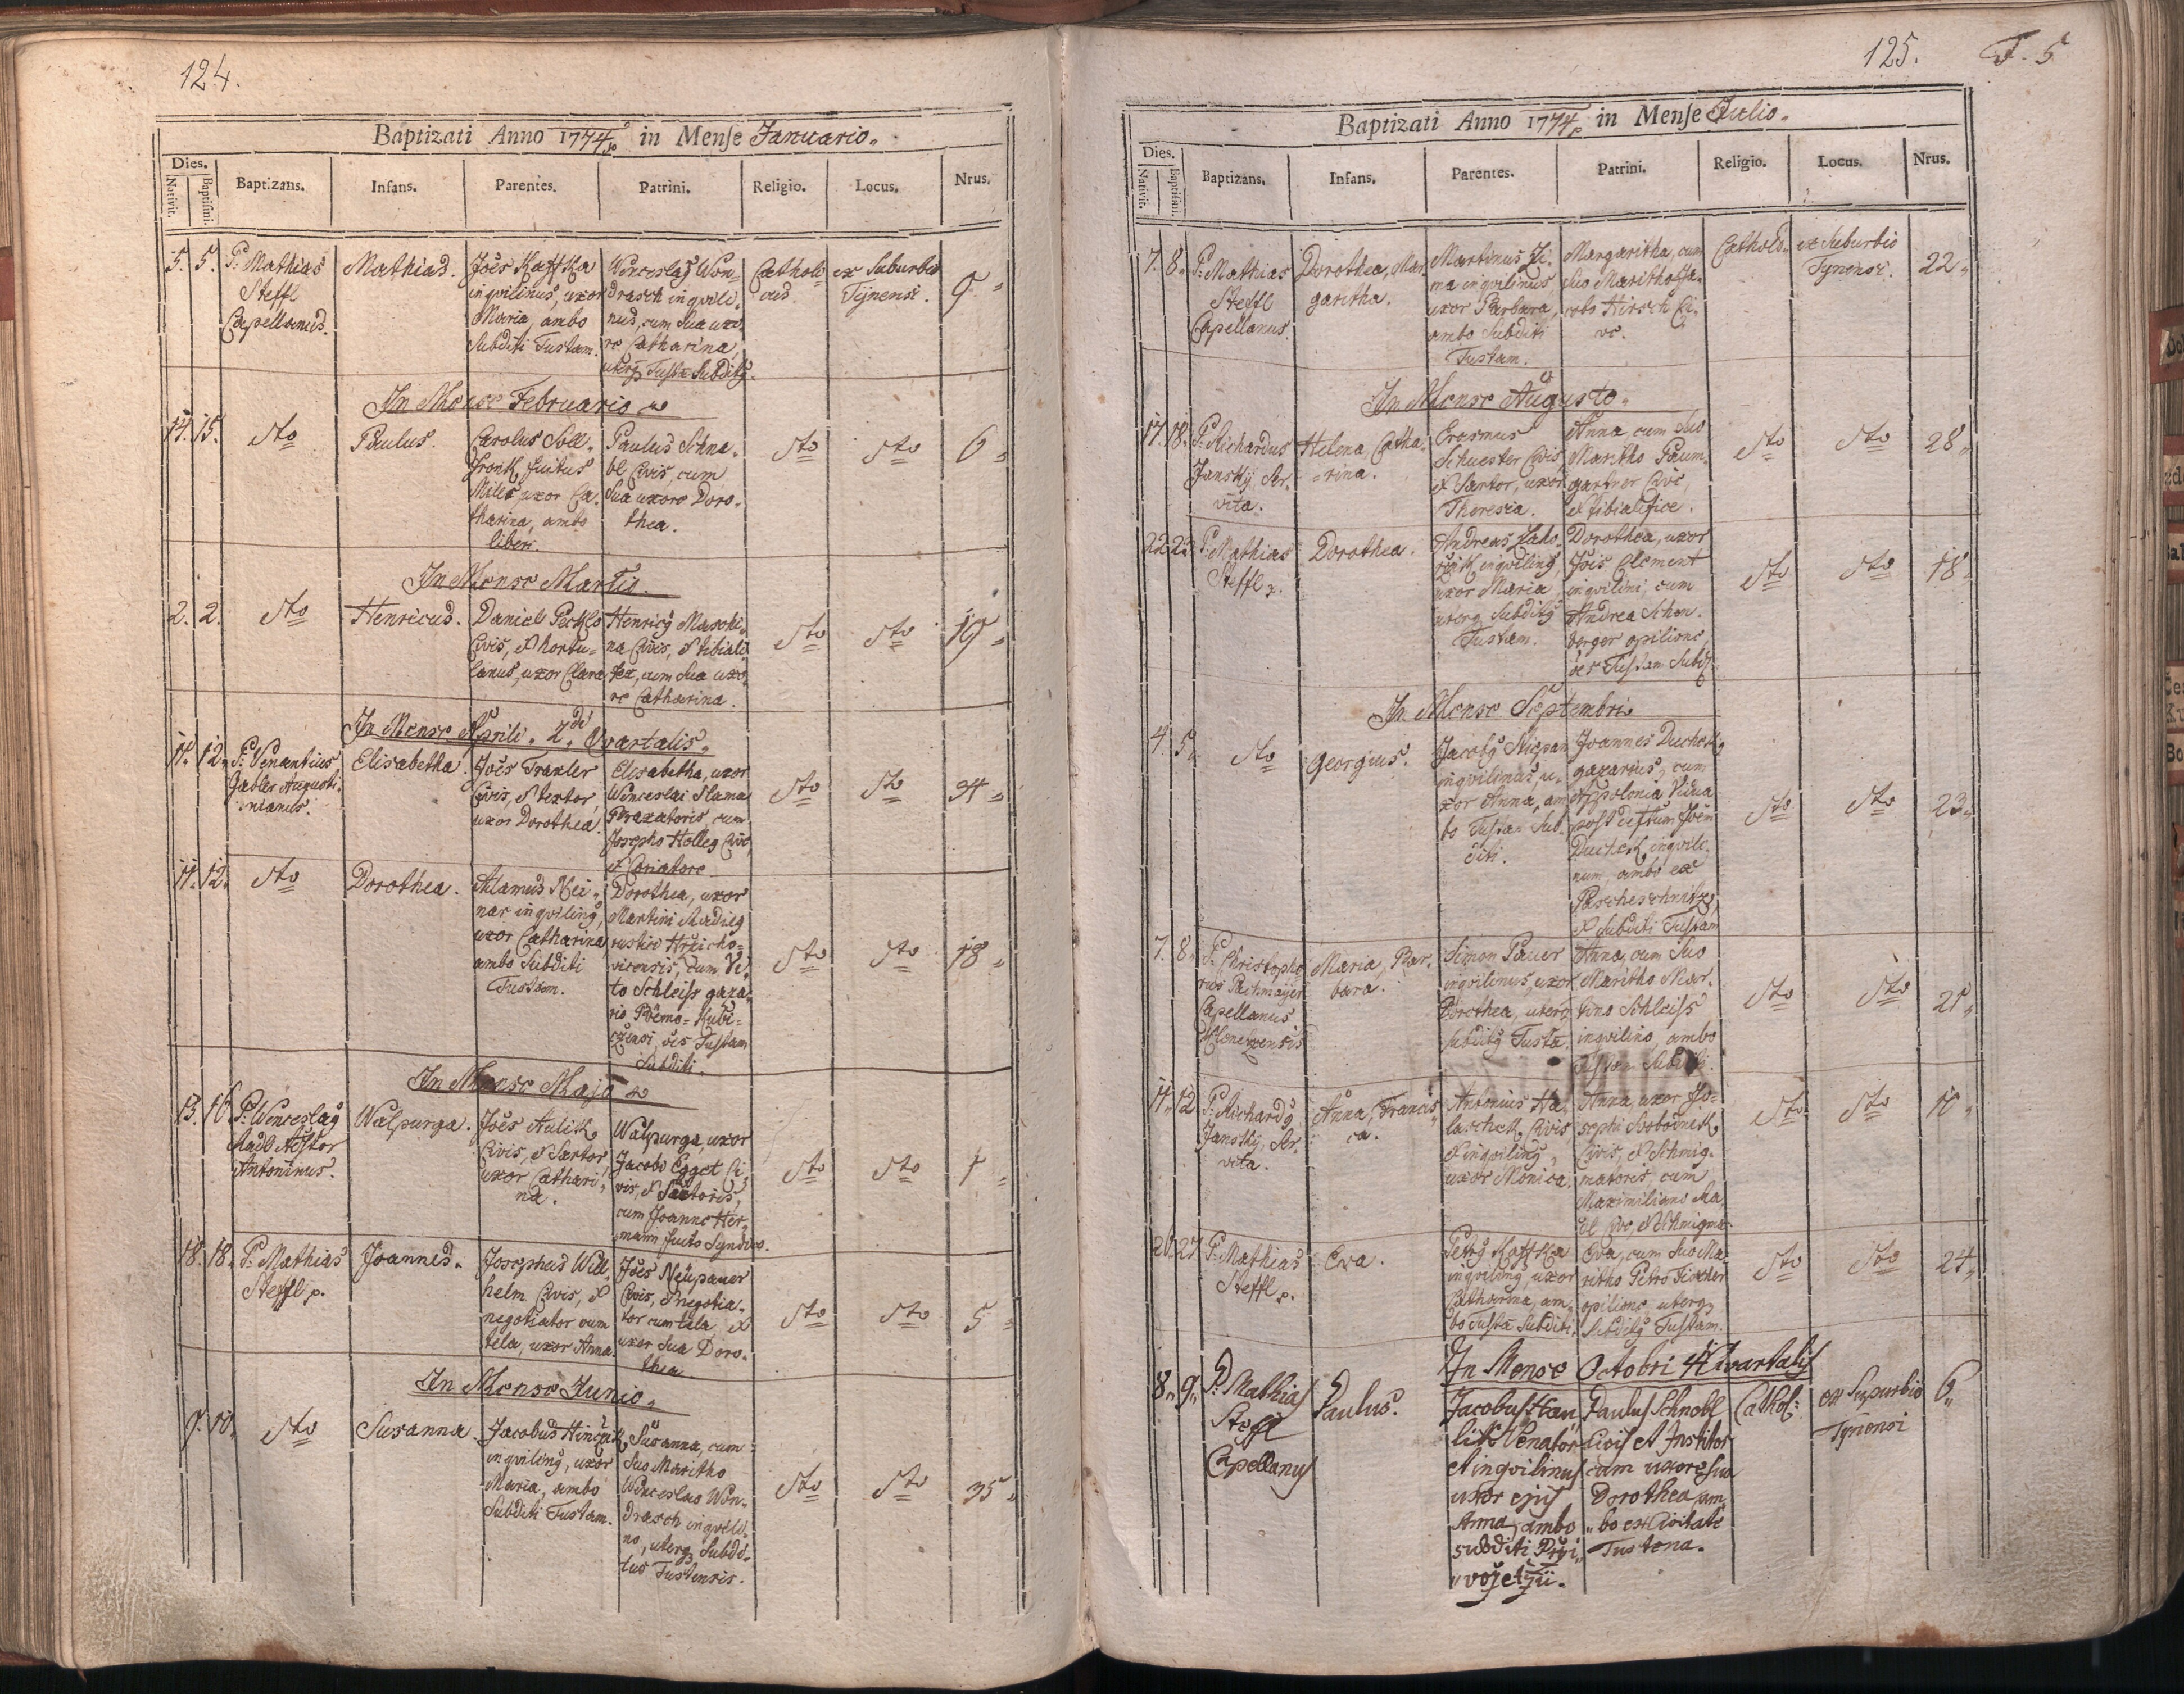 124.
Baptizati Anno 1774to in Mense Januario.
Dies. Baptizans. Infans. Parentes. Patrini. Religio. Locus. Nrus.
Nativit. Baptismi.
5. 5. P. Mathias Steffl Capellanus.
Mathias.
Joes Kaffka
inqvilinus, uxor
Maria, ambo
Subditi Tustam.
Wenceslaỹ Won-
drasch inqvili-
nus, cum Sua uxo-
re Catharina,
uterq Tusta Subditỹ.
Catholi-
cus
ex Suburbio
Tynensi.
9.
In Mense Februario
14. 15. dto
Paulus.
Carolus Soll-
fronk, fuitus
Miles, uxor Ca-
tharina, ambo
liberi.
Paulus Schna-
bl Civis, cum
Sua uxore Doro-
thea.
dto
dto
6.
In Mense Martio.
2. 2. dto
Henricus.
Daniel
Civis, & hortu-
lanus, uxor Clara
Henricỹ Maschi-
na Civis, & tibiali-
fex, cum Sua uxo-
re Catharina.
dto
dto
19.
In Mense Aprili. 2di Qvartalis.
11. 12. P. Venantius
Gabler Augusti-
nianus.
Elisabetha.
Joes Traxler
Civis, & textor,
uxor Dorothea.
Elisabetha, uxor
Wenceslai Slama
Braxatoris, cum
Josepho Holleg Cive,
& Coriatore
dto
dto
34.
11. 12. dto
Dorothea.
Adamus Nei-
nar inqvilinỹ,
uxor Catharina,
ambo Subditi
Tustam.
Dorothea, uxor
Martini Radieg
rustici
vicensis, cum Vi-
to Schleiss gaza-
rio
oes Tustam
Subditi.
dto
dto
18.
In Mense Majo
13. 16. P. Wenceslaỹ
Antoninus.
Walpurga.
Joes Aulik
Civis, & Sartor
uxor Cathari-
na.
Walpurga, uxor
Jacobi Egget Ci-
vis, & Sartoris,
cum Joanne Her-
mann fuito Syndico.
dto
dto
1.
18. 18. P. Mathias
Steffl p.
Joannes.
Josephus Will-
helm Civis, &
negotiator cum
tela, uxor Anna
Joes Neupauer
Civis, & negotia-
tor cum tela &
uxor Sua Doro-
thea
dto
dto
5.
In Mense Junio.
9. 10. dto
Susanna.
Jacobus Hinczik
inqvilinỹ, uxor
Maria, ambo
Subditi Tustam.
Susanna, cum
Suo Maritho
Wenceslao Won-
drasch inqvili-
no, uterq Subdi-
tus Tustensis.
dto
dto
35.
125. F. 5
Baptizati Anno 1774 in Mense Julio.
Dies. Baptizans. Infans. Parentes. Patrini. Religio. Locus. Nrus.
Nativit. Baptismi.
7. 8. P. Mathias
Steffl
Capellanus
Dorothea, Mar-
garitha.
Martinus Zi-
ma inqvilinus
uxor Barbara,
ambo Subditi
Tustam.
Margaritha, cum
Suo Maritho Ja-
cobo Hirsch Ci-
ve.
Cathol.
ex Suburbio
Tynensi.
22.
In Mense Augusto.
17. 18. P. Richardus
Jansky Ser-
vita.
Helena, Catha-
rina.
Erasmus
Schuester Civis,
& Sartor, uxor
Theresia.
Anna, cum Suo
Maritho Paum-
gartner Cive,
& tibialifice.
dto
dto
28.
22. 22. P. Mathias
Steffl p.
Dorothea.
Andreas Zaho-
inqvilinỹ,
uxor Maria
uterq Subditỹ
Tustam.
Dorothea, uxor
Jois Clement
inqvilini, cum
Andrea Schen-
berger opilione,
oes Tustam Subd.
dto
dto
18.
In Mense Septembri
4. 5. dto
Georgius.
Jacobỹ
inqvilinus, u-
xor Anna, am-
bo Tustam Sub-
diti.
Joannes Duchek
gazarius, cum
Appolonia Vidua
post deftum Joem
Duchek inqvili-
num, ambo ex
Pascheschnitz,
& Subditi Tustam
dto
dto
23.
7. 8. P. Christopho-
rus
Capellanus
Klenczensis
Maria, Bar-
bara.
Simon Pauer
inqvilinus, uxor
Dorothea, uterq
Subditỹ Tusta.
Anna, cum Suo
Maritho Mar-
tino Schleiss
inqvilino, ambo
Tustam Subditi.
dto
dto
21.
11. 12. P. Richardỹ
Jansky, Ser-
vita.
Anna, Francis-
ca.
Antonius Ha-
laschek Civis
& inqvilinỹ,
uxor Monica.
Anna, uxor Jo-
sephi Swobodnik
Civis, & Schmig-
matoris, cum
Maximiliano
Cive, & Schmigma
dto
dto
10.
26. 27. P. Mathias
Steffl p.
Eva.
Petrỹ Kaffka
inqvilinỹ, uxor
Catharina, am-
bo Tusta Subditi.
Eva, cum Suo Ma-
ritho Petro
opilione, uterq
Subditỹ Tustam.
dto
dto
24.
In Mense Octobri 4ti Qvartalis
8. 9. P. Mathias
Steffl
Capellanus
Paulus.
Jacobus Hau-
lik Venator
et inqvilinus
uxor ejus
Anna, ambo
subditi
Paulus Schnobl
Civis et Institor
cum uxore sua
Dorothea, am-
bo ex Civitate
Tustena.
Cathol:
ex Supurbio
Tynensi
6.